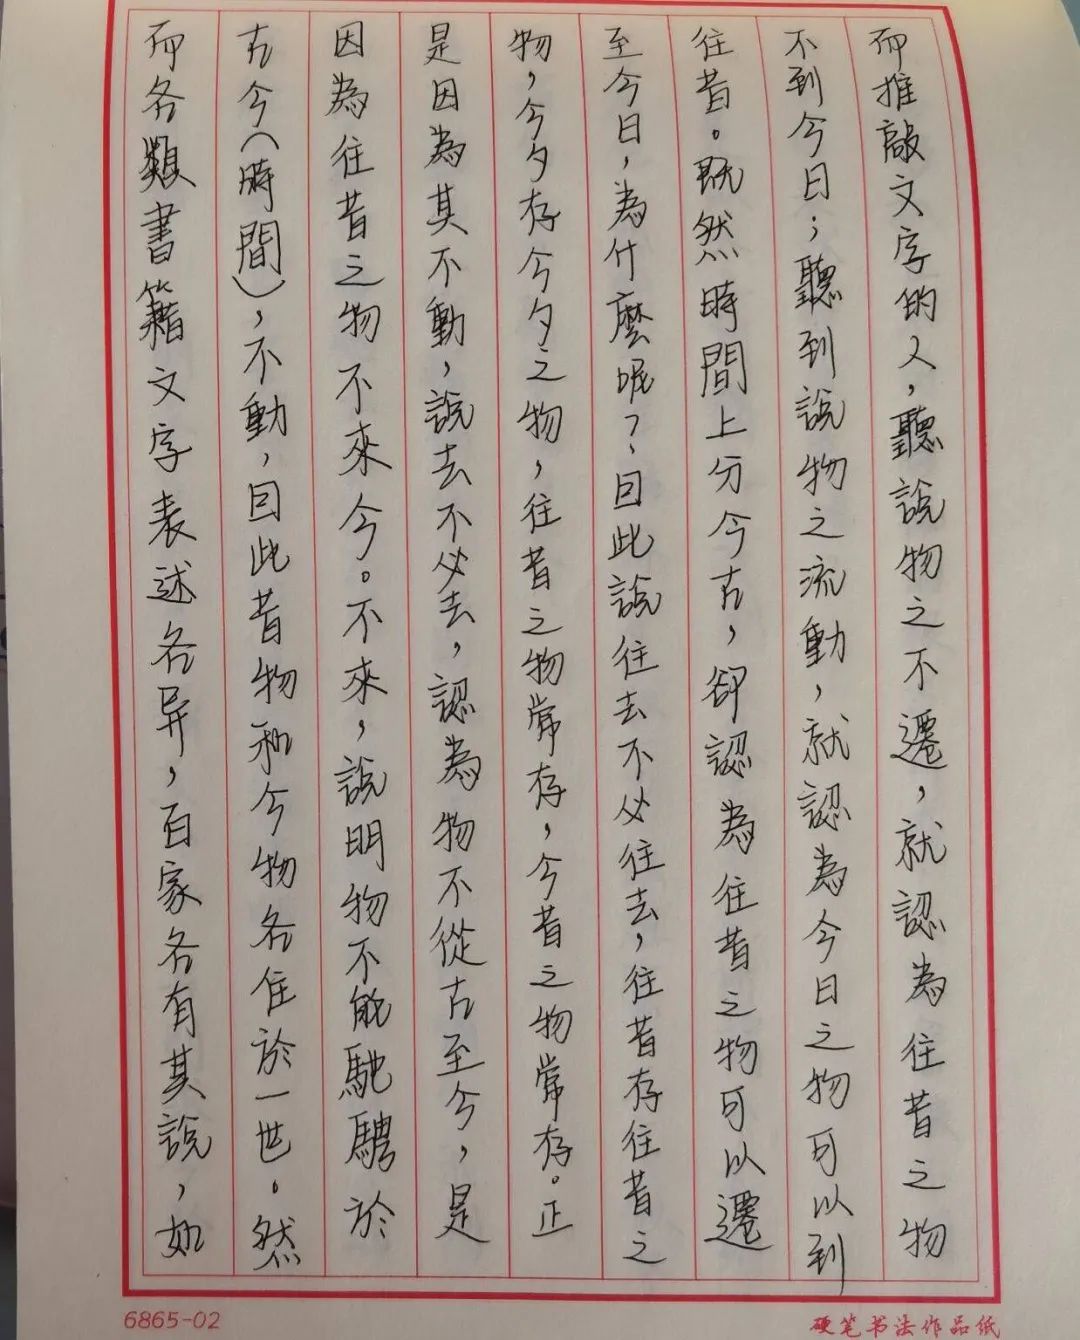 而推敲文字的人，聽說物之不遷，就認為往昔之物
不到今日；聽到說物之流動，就認為今日之物可以到
往昔。既然時間上分今古，卻認為往昔之物可以遷
至今日，為什麼呢？因此說往去不必往去，往昔存往昔之
物，今夕存今夕之物，往昔之物常存，今昔之物常存。正
是因為其不動，說去不必去，認為物不從古至今，是
因為往昔之物不來今。不來，說明物不能馳騁於
古今（時間），不動，因此昔物和今物各住於一世。然
而各類書籍文字表述各异，百家各有其說，如
6865-02
硬笔书法作品纸